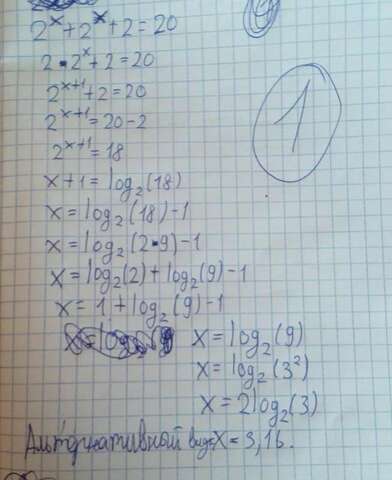 2ˣ+2ˣ+2=20
2·2ˣ+2=20
2ˣ⁺¹+2=20
2ˣ⁺¹=20-2
2ˣ⁺¹=18
1
x+1=log₂(18)
x=log₂(18)-1
x=log₂(2·9)-1
x=log₂(2)+log₂(9)-1
x=1+log₂(9)-1
x=log₂(9)
x=log₂(3²)
x=2log₂(3)
Альтернативный вид: x=3,16.